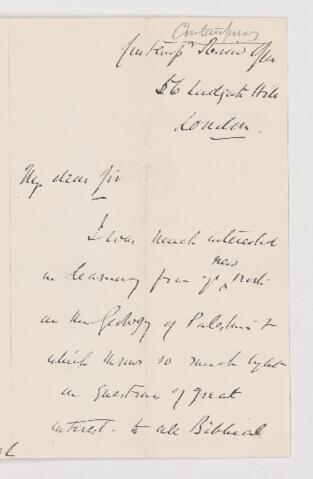 Contemporary
Contempy Review Office
56 Ludgate Hill
London.
My dear Sir
I was much interested
in learning from yr new work
on the Geology of Palestine &
which throws so much light
on questions of great
interest to all Biblical